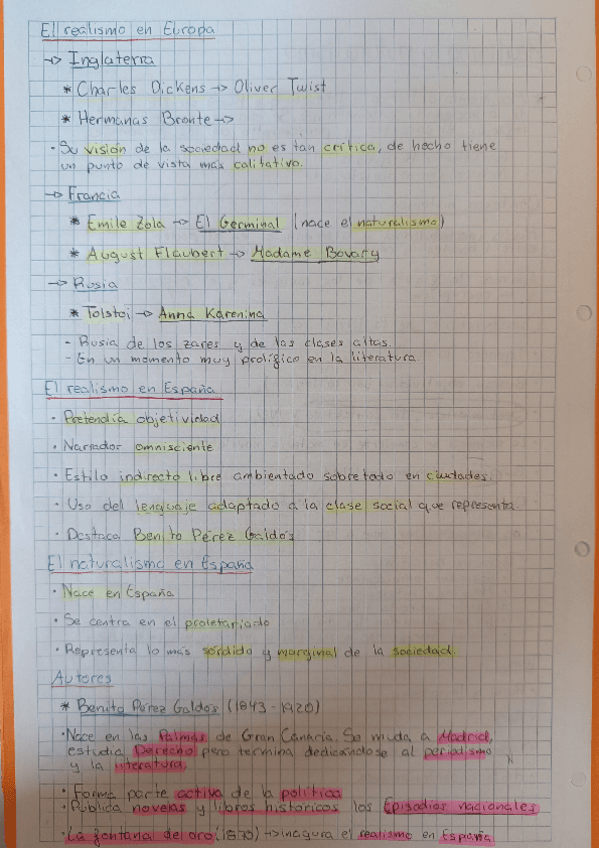 El realismo en Europa
-> Inglaterra
* Charles Dickens -> Oliver Twist
* Hermanas Bronte ->
· Su visión de la sociedad no es tan crítica, de hecho tiene
un punto de vista más calitativo.
-> Francia
* Emile Zola -> El Germinal (nace el naturalismo)
* August Flaubert -> Madame Bovary
-> Rusia
* Tolstoi -> Anna Karenina
- Rusia de los zares y de las clases altas.
- En un momento muy prolífico en la literatura.
El realismo en España
· Pretendía objetividad
· Narrador omnisciente
· Estilo indirecto libre ambientado sobretodo en ciudades.
· Uso del lenguaje adaptado a la clase social que representa.
· Destaca Benito Pérez Galdós
El naturalismo en España
· Nace en España
· Se centra en el proletariado
· Representa lo más sórdido y marginal de la sociedad.
Autores
* Benito Pérez Galdós (1843-1920)
· Nace en las Palmas de Gran Canaria. Se muda a Madrid,
estudia Derecho pero termina dedicándose al periodismo
y la literatura.
· Forma parte activa de la política
· Publica novelas y libros históricos los Episodios nacionales
· La fontana de oro (1870) -> inagura el realismo en España